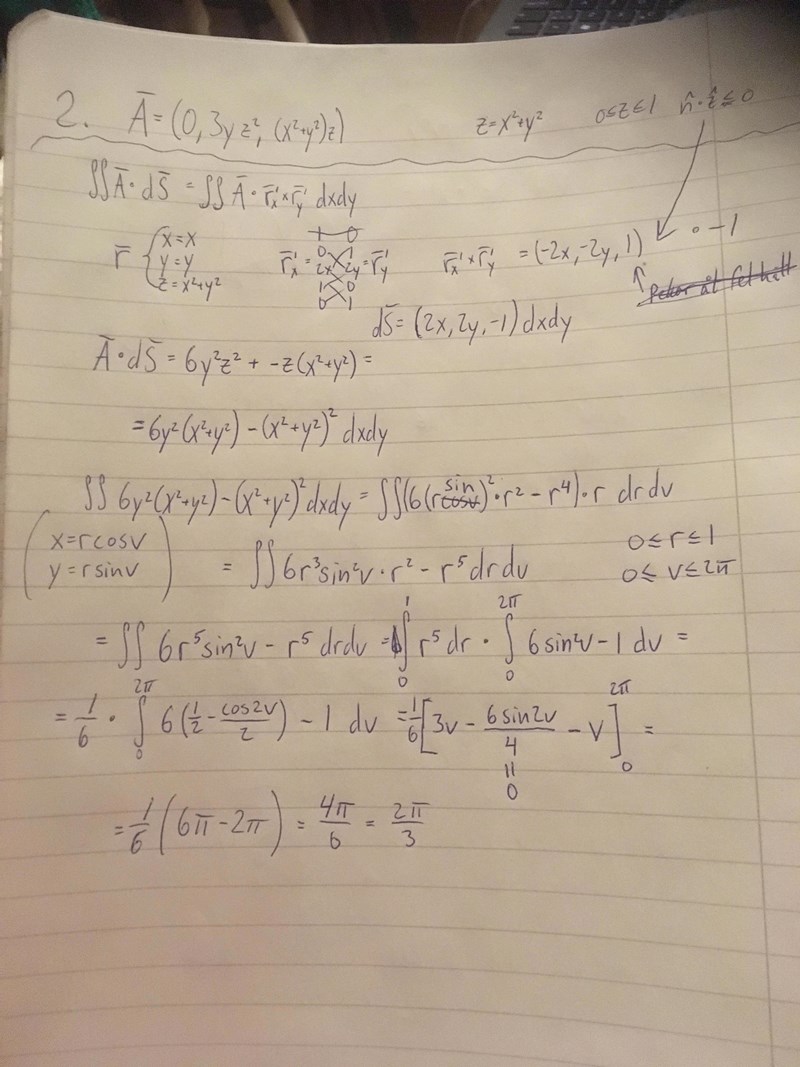 2. Ā = (0, 3yz², (x²+y²)z) z = x²+y² 0≤z≤1 n̂·ẑ≤0
∬Ā·dS̄ = ∬Ā·r̄'ₓ×r̄'ᵧ dxdy
r̄ { x=x
y=y
z=x²+y²
r̄'ₓ = 1 0
0 1
2x 2y = r̄'ᵧ
1 0
0 1
r̄'ₓ×r̄'ᵧ = (-2x, -2y, 1) · -1
Pekar åt fel håll
dS̄ = (2x, 2y, -1) dxdy
Ā·dS̄ = 6y²z² + -z(x²+y²) =
= 6y²(x²+y²) - (x²+y²)² dxdy
∬ 6y²(x²+y²) - (x²+y²)² dxdy = ∬(6(r cosv sin)²·r² - r⁴)·r drdv
( x = r cosv
y = r sinv )
= ∬ 6r³sin²v·r² - r⁵ drdv
0≤r≤1
0≤v≤2π
= ∬ 6r⁵sin²v - r⁵ drdv = ∫₀¹ r⁵ dr · ∫₀^2π 6sin²v - 1 dv =
= 1/6 · ∫₀^2π 6(1/2 - cos2v/2) - 1 dv = 1/6 [3v - 6sin2v/4 - v]₀^2π =
॥
0
= 1/6 (6π - 2π) = 4π/6 = 2π/3